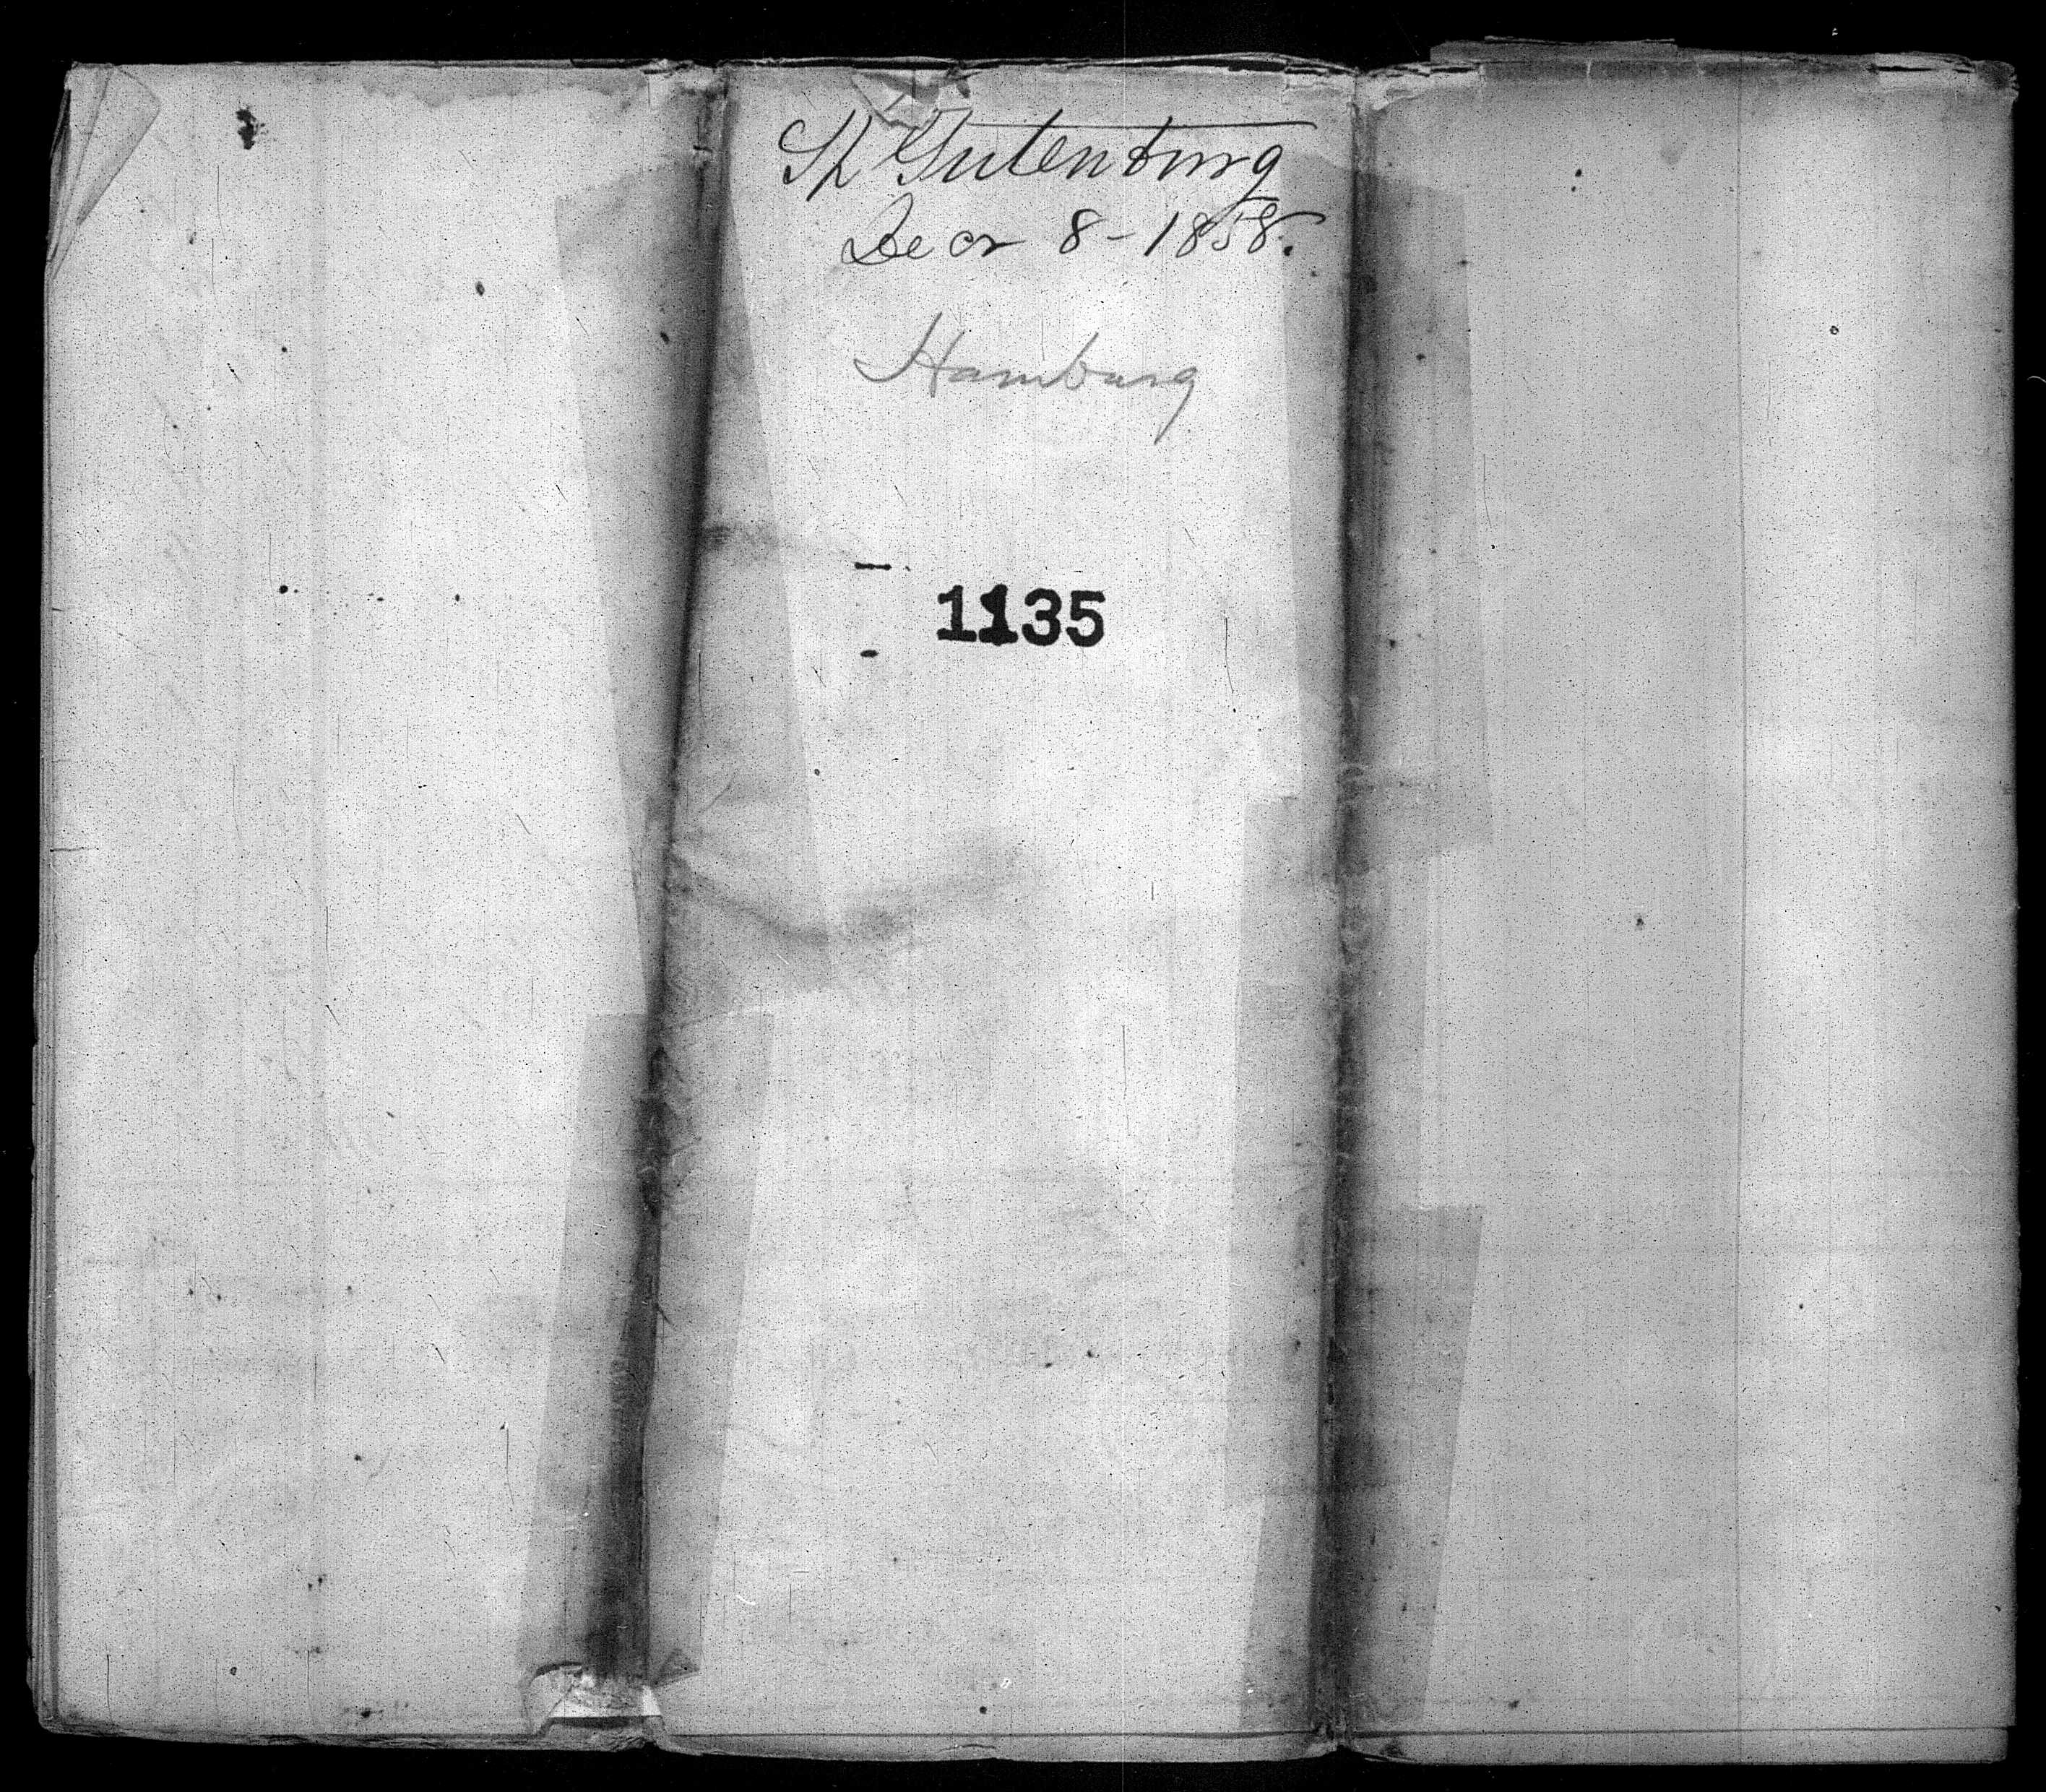 Sh Gutenburg
Decr 8-1858.
Hamburg
1135